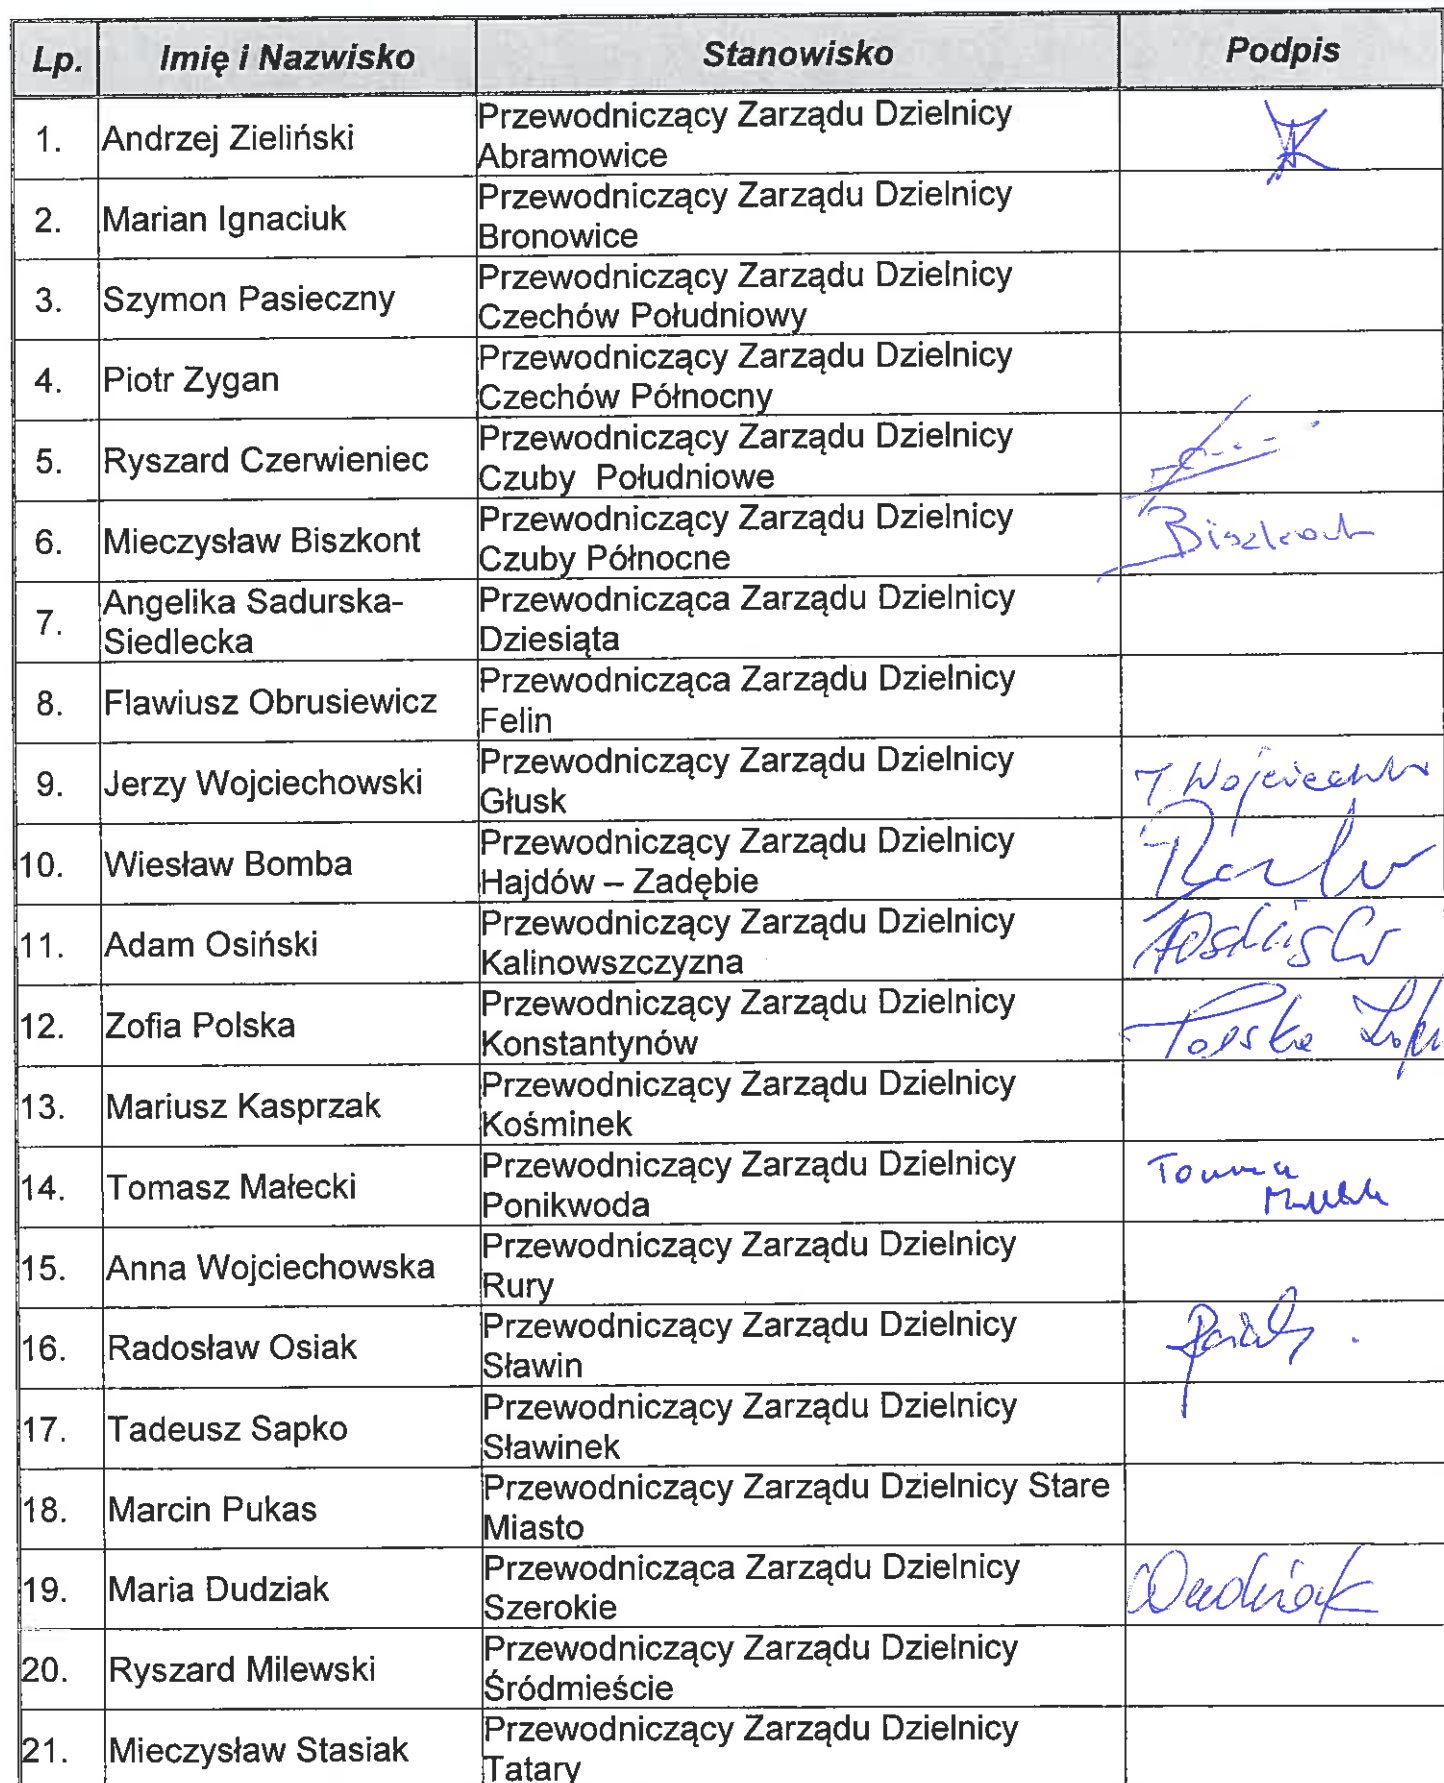 Lp. Imię i Nazwisko Stanowisko Podpis
1. Andrzej Zieliński Przewodniczący Zarządu Dzielnicy
Abramowice
2. Marian Ignaciuk Przewodniczący Zarządu Dzielnicy
Bronowice
3. Szymon Pasieczny Przewodniczący Zarządu Dzielnicy
Czechów Południowy
4. Piotr Zygan Przewodniczący Zarządu Dzielnicy
Czechów Północny
5. Ryszard Czerwieniec Przewodniczący Zarządu Dzielnicy
Czuby Południowe
6. Mieczysław Biszkont Przewodniczący Zarządu Dzielnicy Biszkont
Czuby Północne
7. Angelika Sadurska- Przewodnicząca Zarządu Dzielnicy
Siedlecka Dziesiąta
8. Flawiusz Obrusiewicz Przewodnicząca Zarządu Dzielnicy
Felin
9. Jerzy Wojciechowski Przewodniczący Zarządu Dzielnicy
Głusk
10. Wiesław Bomba Przewodniczący Zarządu Dzielnicy
Hajdów – Zadębie
11. Adam Osiński Przewodniczący Zarządu Dzielnicy
Kalinowszczyzna
12. Zofia Polska Przewodniczący Zarządu Dzielnicy Polska
Konstantynów
13. Mariusz Kasprzak Przewodniczący Zarządu Dzielnicy
Kośminek
14. Tomasz Małecki Przewodniczący Zarządu Dzielnicy
Ponikwoda
15. Anna Wojciechowska Przewodniczący Zarządu Dzielnicy
Rury
16. Radosław Osiak Przewodniczący Zarządu Dzielnicy
Sławin
17. Tadeusz Sapko Przewodniczący Zarządu Dzielnicy
Sławinek
18. Marcin Pukas Przewodniczący Zarządu Dzielnicy Stare
Miasto
19. Maria Dudziak Przewodnicząca Zarządu Dzielnicy Dudziak
Szerokie
20. Ryszard Milewski Przewodniczący Zarządu Dzielnicy
Śródmieście
21. Mieczysław Stasiak Przewodniczący Zarządu Dzielnicy
Tatary